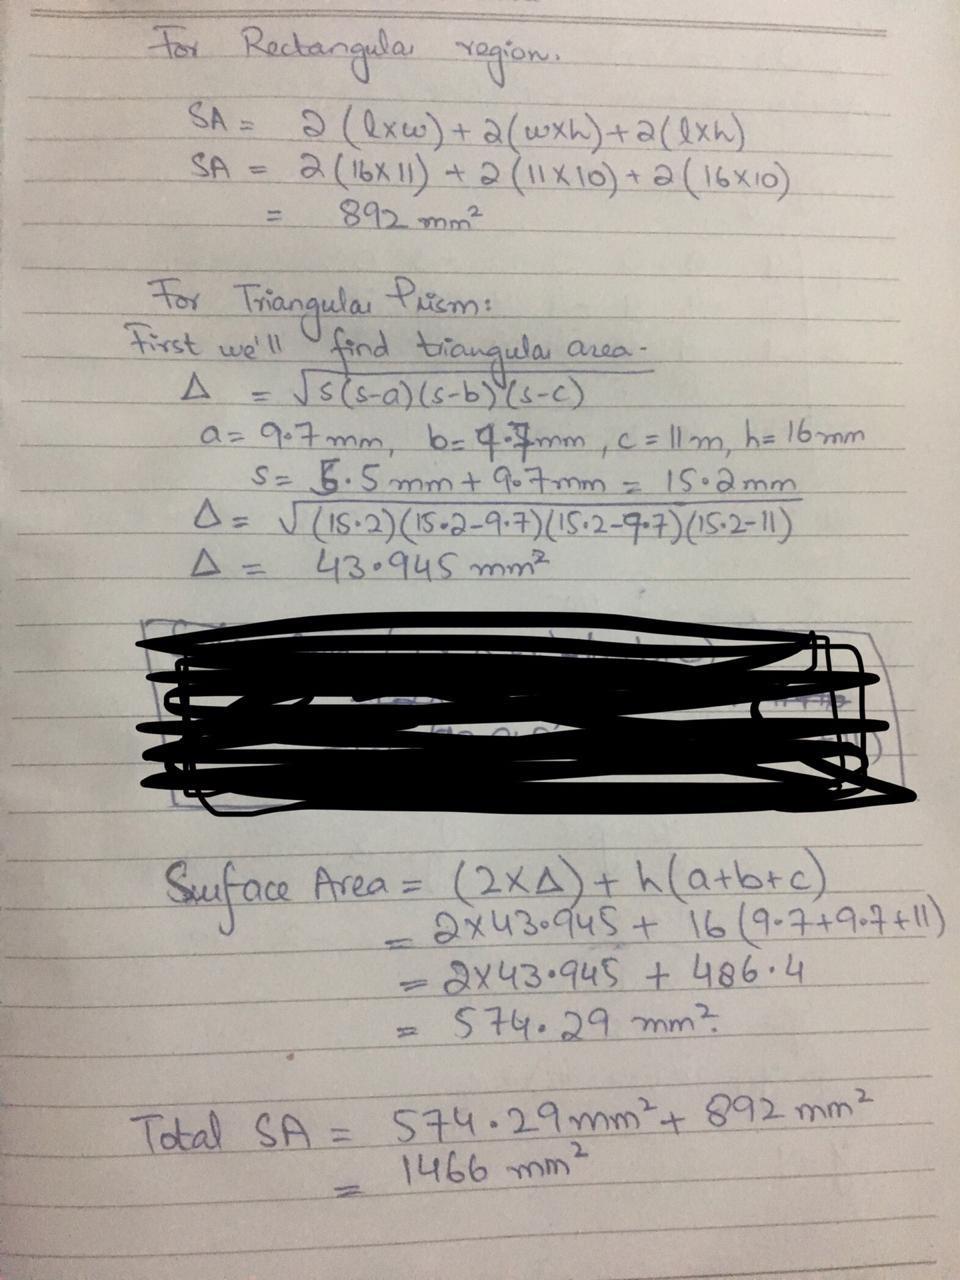 For Rectangular region.
SA = 2(l×w) + 2(w×h) + 2(l×h)
SA = 2(16×11) + 2(11×10) + 2(16×10)
= 892 mm²
For Triangular Prism:
First we'll find triangular area-
Δ = √s(s-a)(s-b)(s-c)
a= 9.7mm, b= 9.7mm, c = 11m, h= 16mm
s= 5.5mm + 9.7mm = 15.2mm
Δ = √(15.2)(15.2-9.7)(15.2-9.7)(15.2-11)
Δ = 43.945 mm²
Surface Area = (2×Δ) + h(a+b+c)
= 2×43.945 + 16(9.7+9.7+11)
= 2×43.945 + 486.4
= 574.29 mm².
Total SA = 574.29mm² + 892 mm²
= 1466 mm²